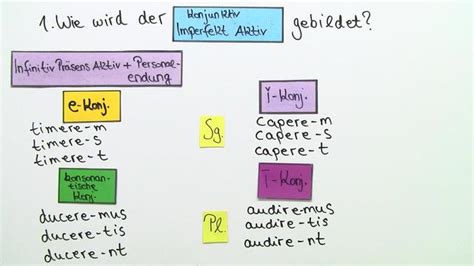 1. Wie wird der Konjunktiv Imperfekt Aktiv gebildet?
Infinitiv Präsens Aktiv + Personal-
endung
e-Konj.
timere-m
timere-s
timere-t
Sg.
ĭ-Konj.
capere-m
capere-s
capere-t
konsonan-
tische
Konj.
ducere-mus
ducere-tis
ducere-nt
Pl.
ī-Konj.
audire-mus
audire-tis
audire-nt